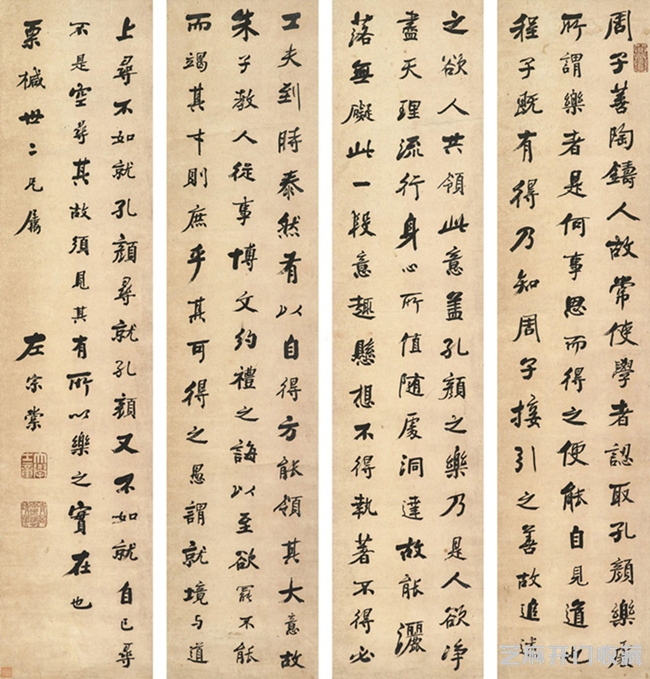 周子善陶鑄人故常使學者認取孔顏樂處
所謂樂者是何事思而得之便能自見道也
程子既有得乃知周子接引之善故追述
之欲人共領此意蓋孔顏之樂乃是人欲净
盡天理流行身心所值隨處洞達故能灑
落無礙此一段意趣懸想不得執著不得必
工夫到時泰然有以自得方能領其大意故
朱子教人從事博文約禮之誨以至欲罷不能
而竭其才則庶乎其可得之愚謂就境与道
上尋不如就孔顏尋就孔顏又不如就自己尋
不是空尋其故須見其有所以樂之實在也
栗楲世二兄屬 左宗棠